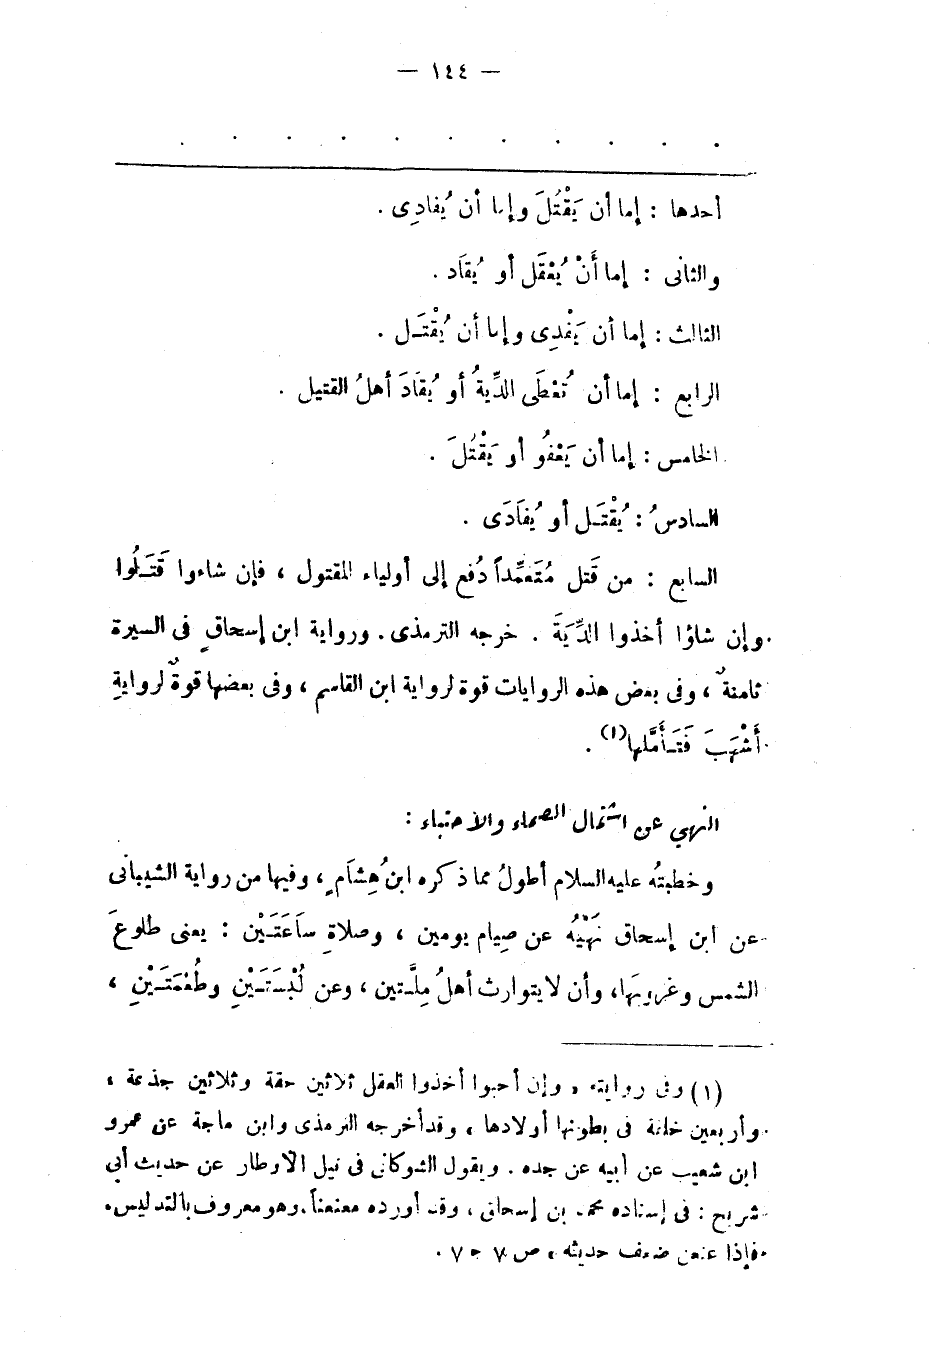 — ١٤٤ —
. . . . . . . . . . .
أحدها : إما أن يَقْتُلَ وإما أن يُفادِى .
والثانى : إما أَنْ يُعْقَل أو يُقَاد .
الثالث : إما أن يَفْدِى وإما أن يُقْتَل .
الرابع : إما أن تُعْطَى الدِّيةُ أو يُقَادَ أهلُ القتيل .
الخامس : إما أن يَعْفُو أو يَقْتُلَ .
السادسُ : يُقْتَل أو يُفَادَى .
السابع : من قَتل مُتَعمِّداً دُفع إلى أولياء المقتول ، فإن شاءوا قَتَلُوا
وإن شاؤا أخذوا الدِّيَةَ . خرجه الترمذى . ورواية ابن إسحاقٍ فى السيرة
ثامنةٌ ، وفى بعض هذه الروايات قوة لرواية ابن القاسم ، وفى بعضها قوةٌ لروايةِ
أَشْهَبَ فَتَأَمَّلها(١) .
النهي عن اشتمال الصماء والاحتباء :
وخطبتُه عليه السلام أطولُ مما ذكره ابنُ هِشَامٍ ، وفيها من رواية الشيبانى
عن ابن إسحاق نَهْيُه عن صِيام يومين ، وصلاةِ سَاعَتَيْن : يعنى طلوعَ
الشمس وغروبَها، وأن لا يتوارث أهلُ مِلَّتين ، وعن لُبْسَتَيْنِ وطُعْمَتَيْنِ ،
(١) وفى رواية ، وإن أحبوا أخذوا العقل ثلاثين حقة وثلاثين جذعة ،
وأربعين خلفة فى بطونها أولادها ، وقد أخرجه الترمذى وابن ماجة عن عمرو
ابن شعيب عن أبيه عن جده . ويقول الشوكانى فى نيل الأوطار عن حديث أبي
شريح : فى إسناده محمد بن إسحاق ، وقد أورده معنعناً. وهو معروف بالتدليس.
فإذا عنعن ضعف حديثه ، ص ٧ ج ٧ .